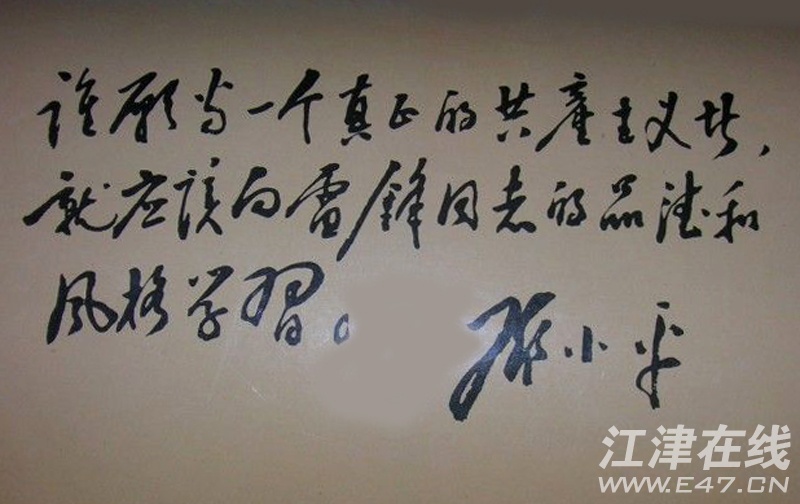 谁愿当一个真正的共产主义者，
就应该向雷锋同志的品德和
风格学习。
邓小平
江津在线
WWW.E47.CN